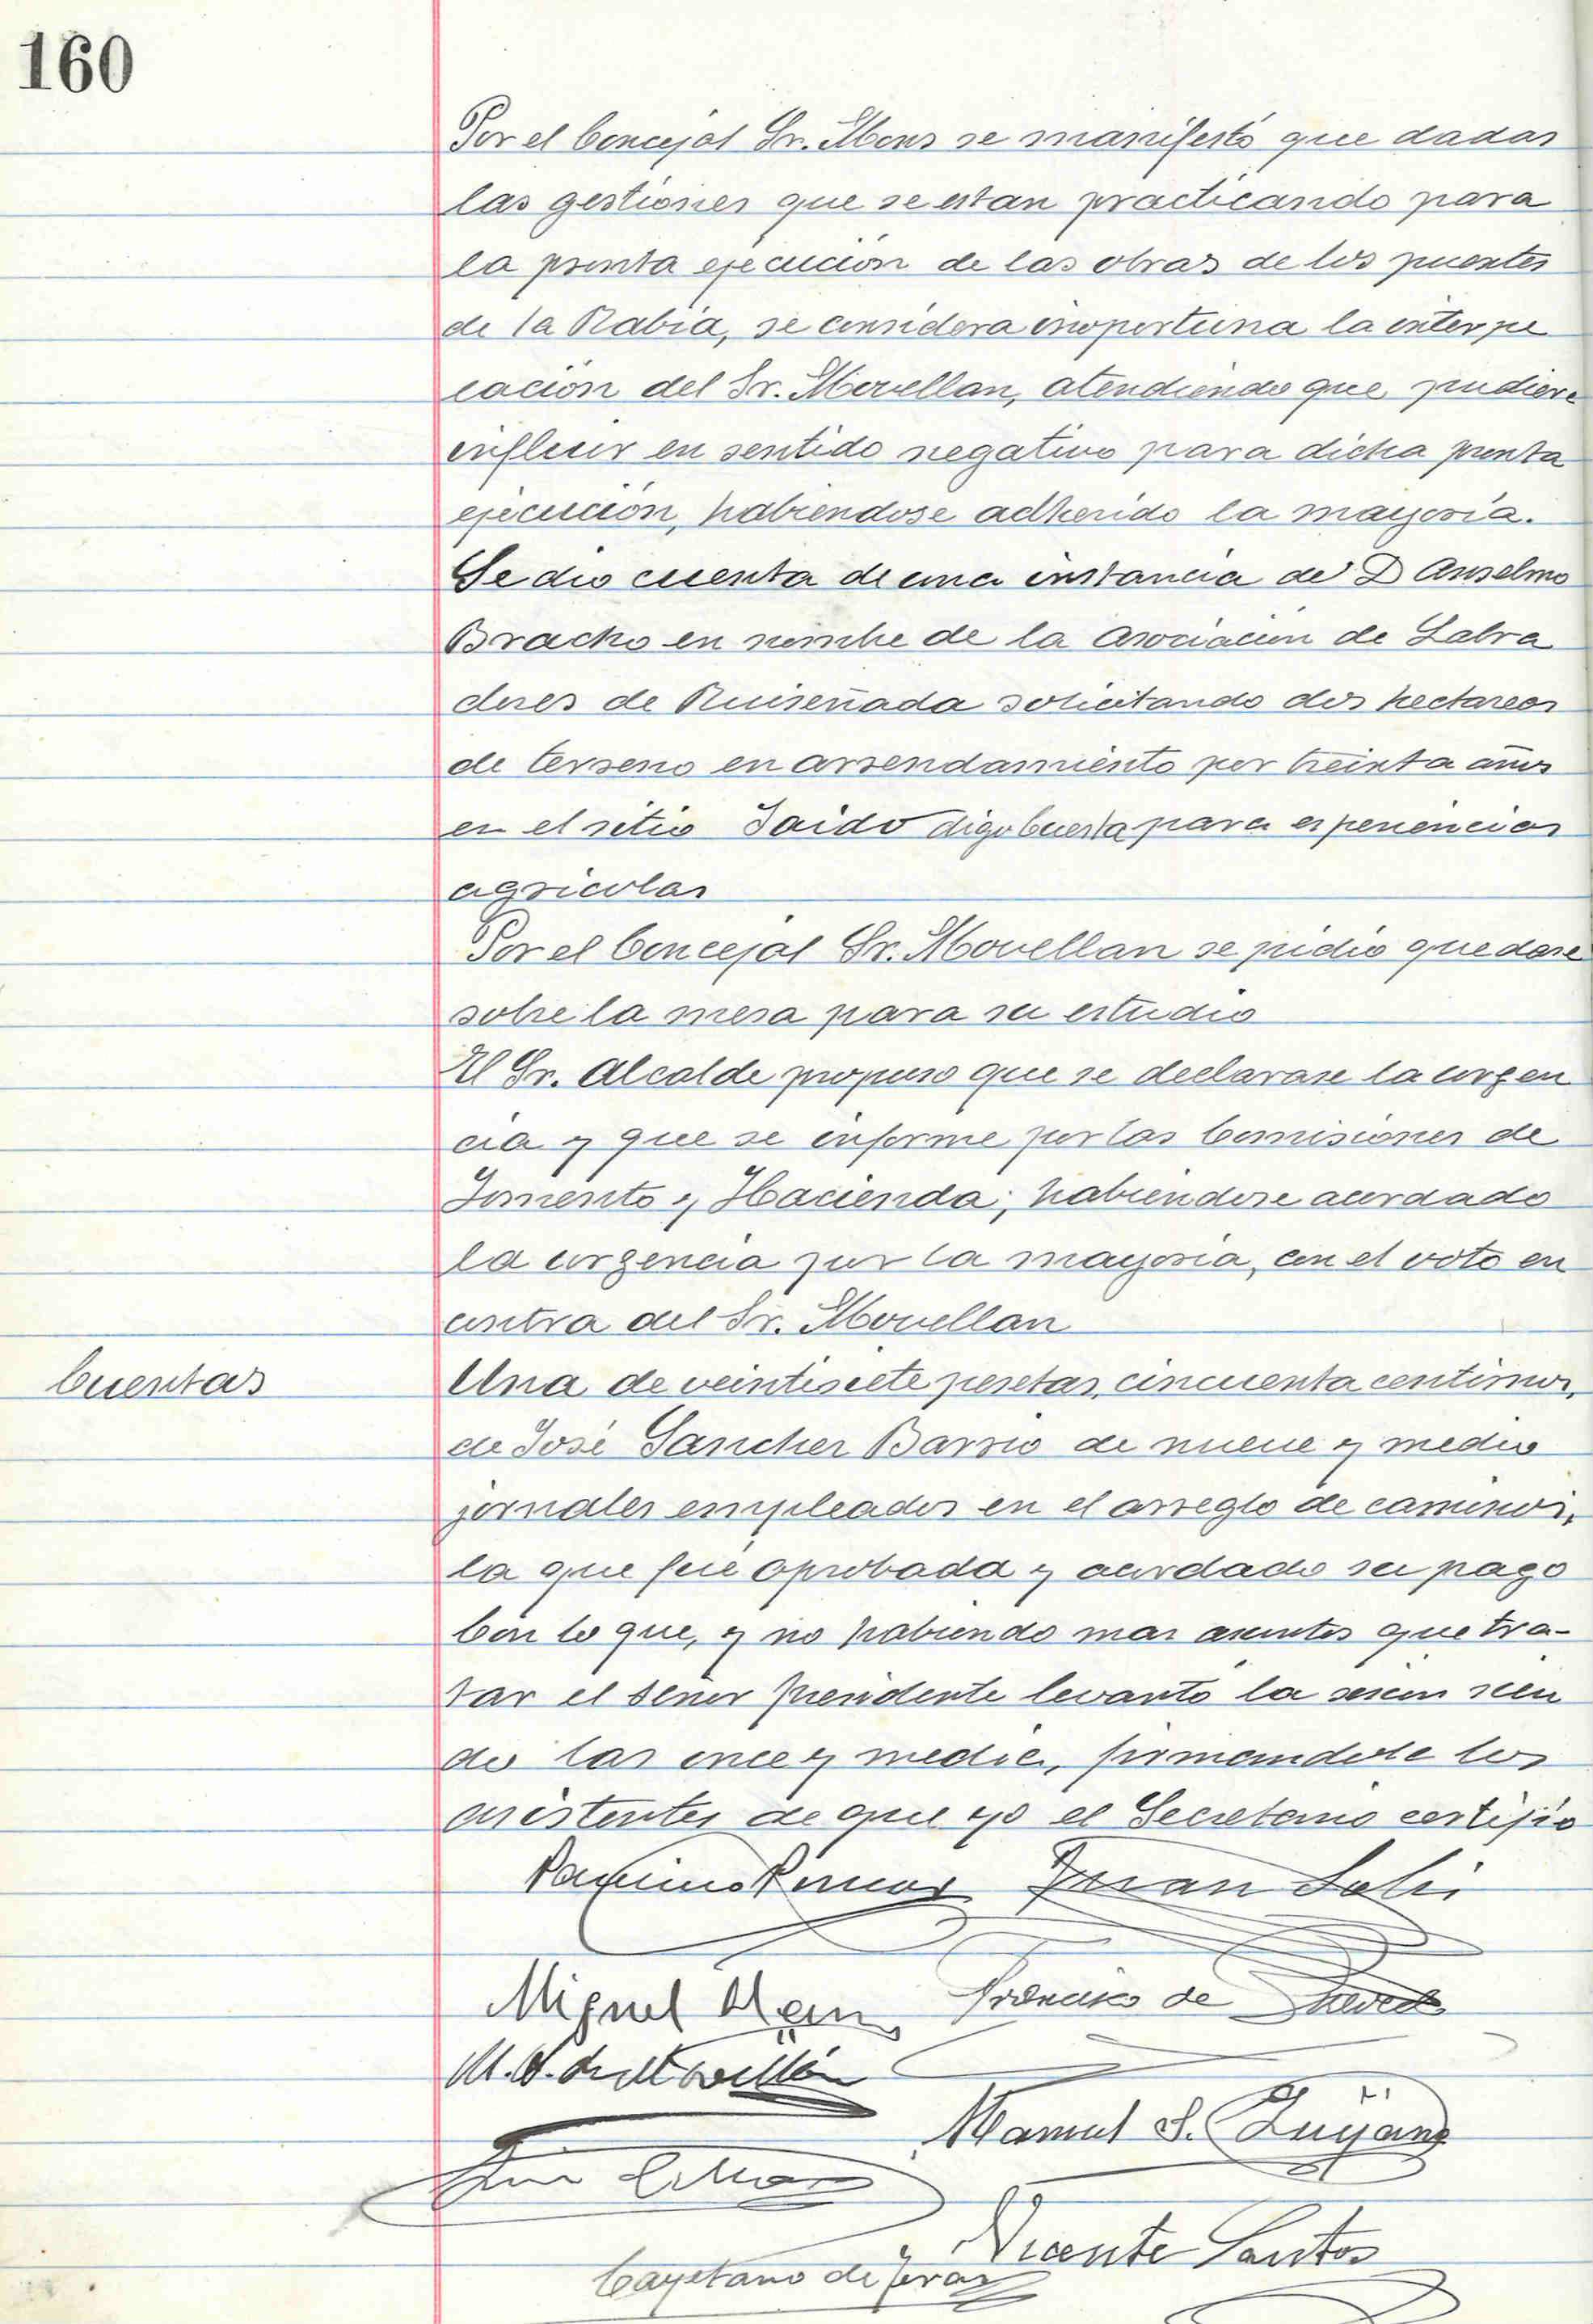 160
Por el Concejal Sr. Mons se manifestó que dadas
las gestiones que se estan practicando para
la pronta ejecución de las obras de los puentes
de la Rabia, se considera inoportuna la interpe
lación del Sr. Movellan, atendiendo que pudiera
influir en sentido negativo para dicha pronta
ejecución, habiendose adherido la mayoría.
Se dio cuenta de una instancia de D Anselmo
Bracho en nombre de la Asociación de Labra
dores de Ruiseñada solicitando dos hectareas
de terreno en arrendamiento por treinta años
en el sitio Saido digo Cuesta para esperiencias
agricolas
Por el Concejal Sr. Movellan se pidio quedase
sobre la mesa para su estudio
El Sr. Alcalde propuso que se declarase la urgen
cia y que se informe por las Comisiones de
Fomento y Hacienda; habiendose acordado
la urgencia por la mayoria, con el voto en
contra del Sr. Movellan
Cuentas
Una de veintisiete pesetas, cincuenta centimos,
de José Sanchez Barrio de nueve y medio
jornales empleados en el arreglo de caminos,
la que fué aprobada y acordado su pago
Con lo que, y no habiendo mas asuntos que tra-
tar el señor presidente levantó la sesion sien
do las once y media, firmandola los
asistentes de que yo el Secretario certifio
Juan Solis
Miguel
Francisco de
M. S. de Movellán
Manuel S.
Luis
Vicente Santos
Cayetano de